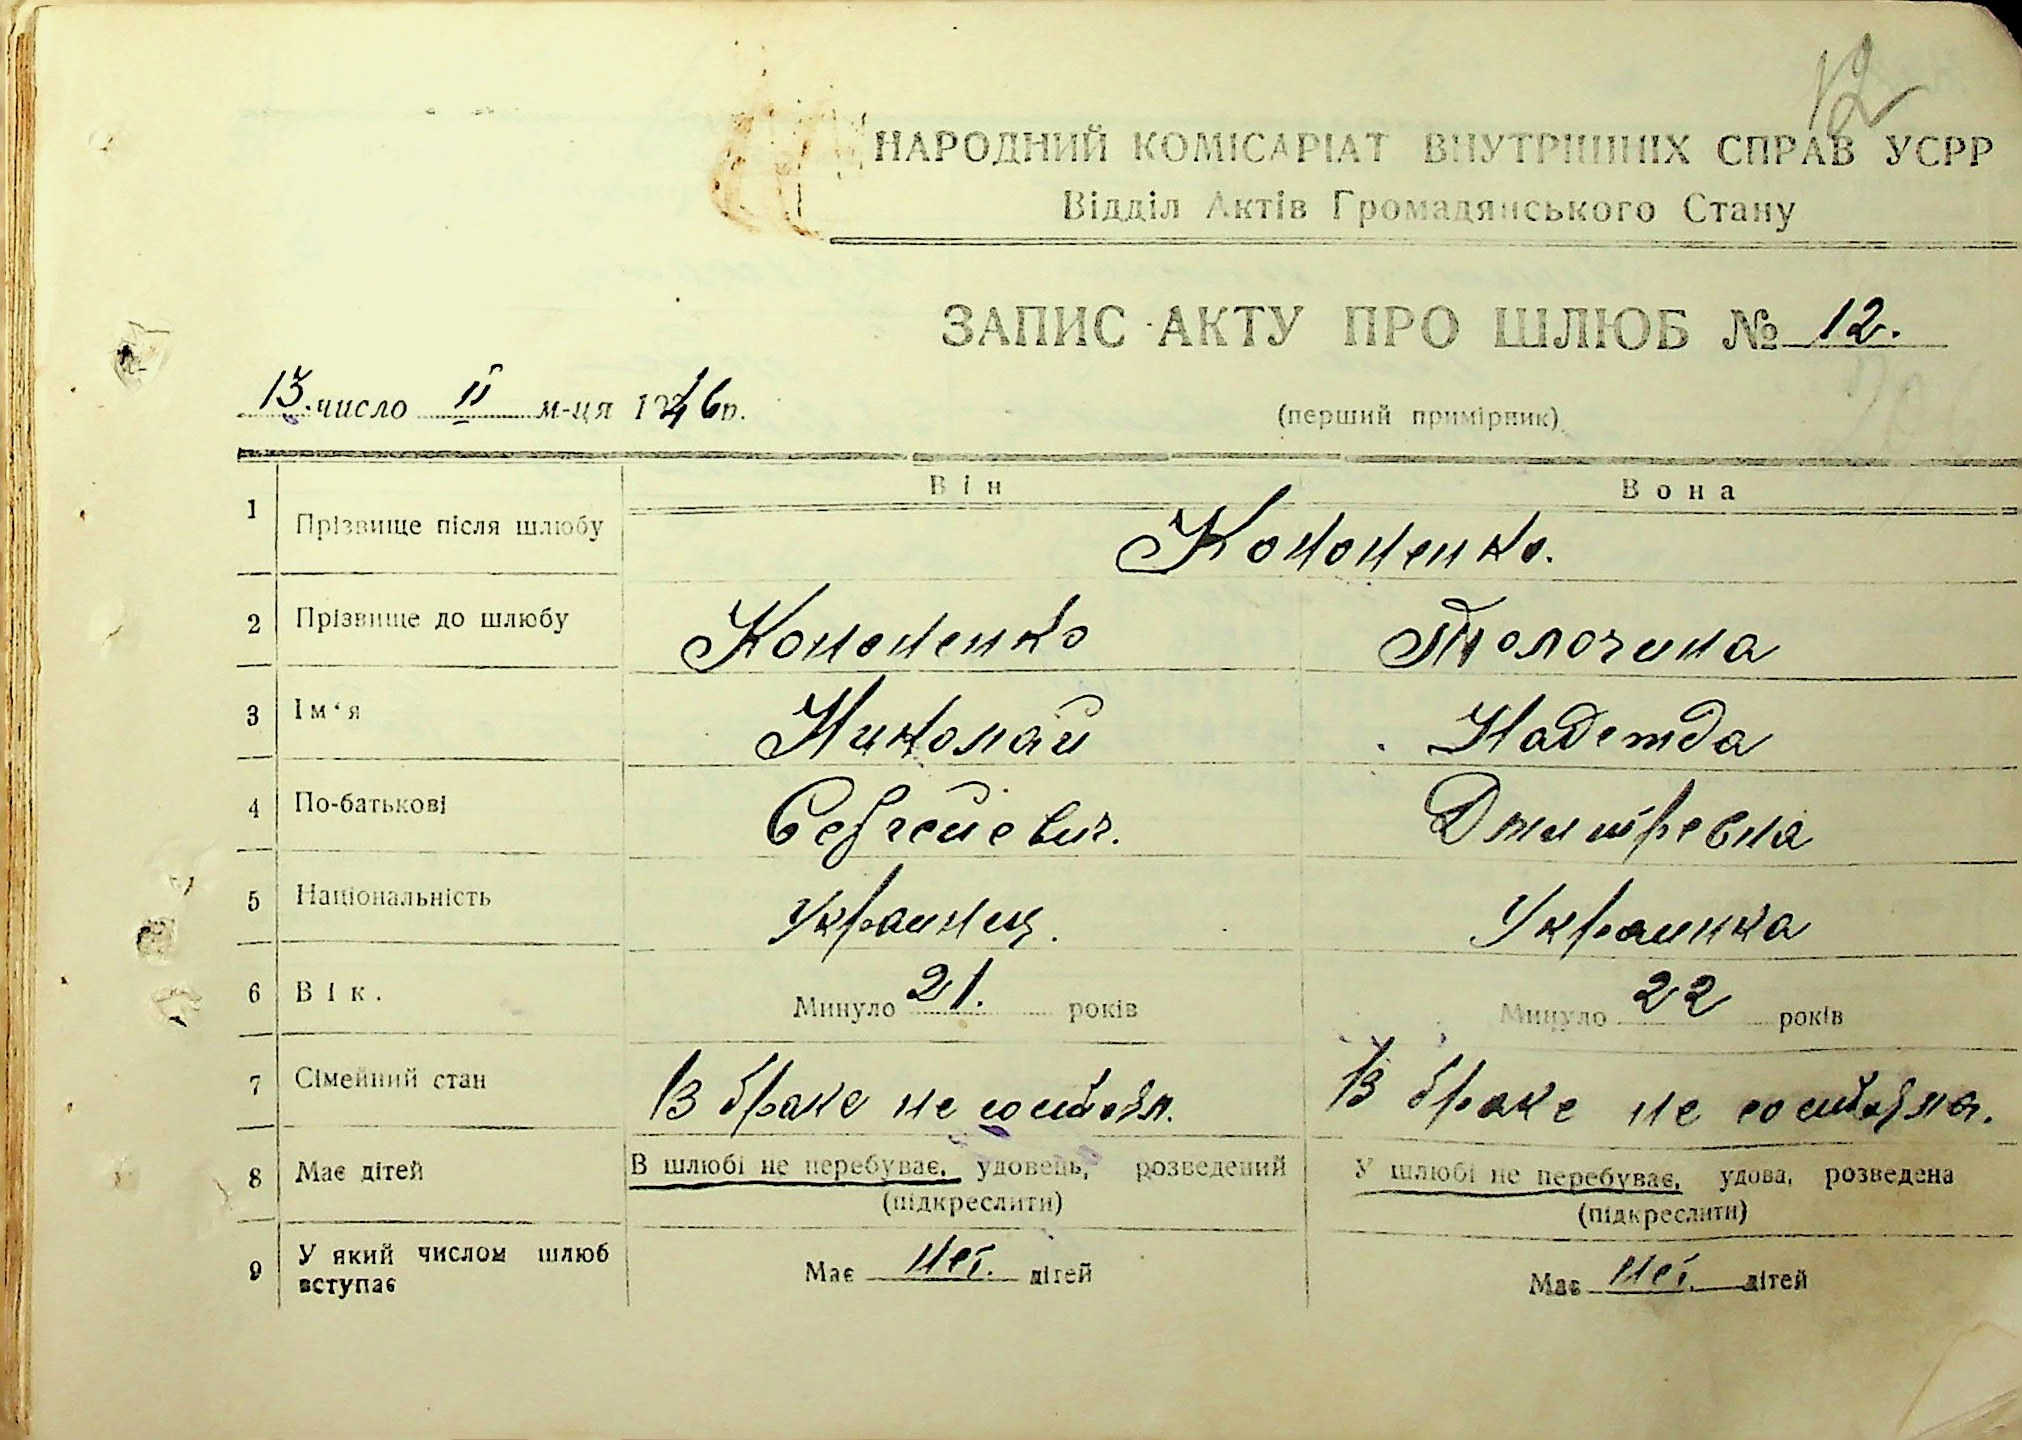 12
НАРОДНИЙ КОМІСАРІАТ ВНУТРІШНІХ СПРАВ УСРР
Відділ Актів Громадянського Стану
ЗАПИС АКТУ ПРО ШЛЮБ № 12.
13. число II м-ця 1946р.
(перший примірник)
Він Вона
1 Прізвище після шлюбу Кононенко.
2 Прізвище до шлюбу Кононенко Толочина
3 Ім'я Николай Надежда
4 По-батькові Сергеевич. Дмитревна
5 Національність Украинец. Украинка
6 Вік. Минуло 21. років Минуло 22 років
7 Сімейний стан В браке не состоял. В браке не состояла.
8 Має дітей В шлюбі не перебуває, удовець, розведений У шлюбі не перебуває, удова, розведена
(підкреслити) (підкреслити)
9 У який числом шлюб вступає Має нет. дітей Має нет. дітей